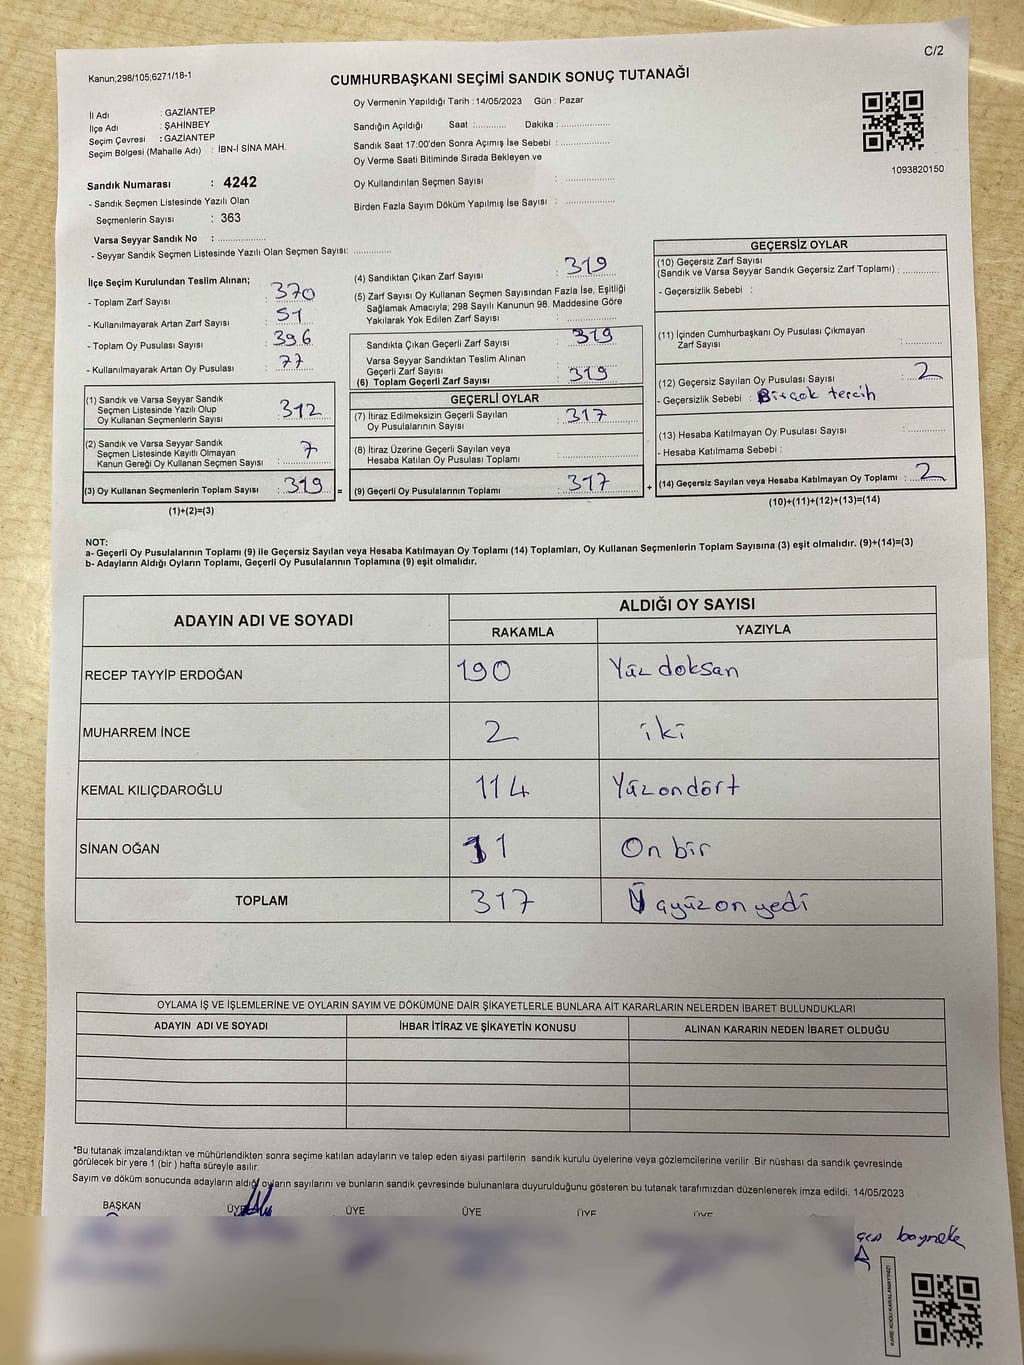 C/2
Kanun;298/105;6271/18-1
CUMHURBAŞKANI SEÇİMİ SANDIK SONUÇ TUTANAĞI
İl Adı : GAZİANTEP
İlçe Adı : ŞAHİNBEY
Seçim Çevresi : GAZİANTEP
Seçim Bölgesi (Mahalle Adı) : İBN-İ SİNA MAH.
Sandık Numarası : 4242
- Sandık Seçmen Listesinde Yazılı Olan
Seçmenlerin Sayısı : 363
Varsa Seyyar Sandık No : ................
- Seyyar Sandık Seçmen Listesinde Yazılı Olan Seçmen Sayısı: .............
Oy Vermenin Yapıldığı Tarih : 14/05/2023 Gün : Pazar
Sandığın Açıldığı Saat :........... Dakika : ................
Sandık Saat 17:00'den Sonra Açımış İse Sebebi : ................
Oy Verme Saati Bitiminde Sırada Bekleyen ve
Oy Kullandırılan Seçmen Sayısı : ................
Birden Fazla Sayım Döküm Yapılmış İse Sayısı : ................
1093820150
İlçe Seçim Kurulundan Teslim Alınan;
- Toplam Zarf Sayısı : 370
- Kullanılmayarak Artan Zarf Sayısı : 51
- Toplam Oy Pusulası Sayısı : 396
- Kullanılmayarak Artan Oy Pusulası : 77
(1) Sandık ve Varsa Seyyar Sandık
Seçmen Listesinde Yazılı Olup
Oy Kullanan Seçmenlerin Sayısı : 312
(2) Sandık ve Varsa Seyyar Sandık
Seçmen Listesinde Kayıtlı Olmayan
Kanun Gereği Oy Kullanan Seçmen Sayısı : 7
(3) Oy Kullanan Seçmenlerin Toplam Sayısı : 319 =
(1)+(2)=(3)
(4) Sandıktan Çıkan Zarf Sayısı : 319
(5) Zarf Sayısı Oy Kullanan Seçmen Sayısından Fazla İse, Eşitliği
Sağlamak Amacıyla; 298 Sayılı Kanunun 98. Maddesine Göre
Yakılarak Yok Edilen Zarf Sayısı : ................
Sandıkta Çıkan Geçerli Zarf Sayısı : 319
Varsa Seyyar Sandıktan Teslim Alınan
Geçerli Zarf Sayısı :
(6) Toplam Geçerli Zarf Sayısı : 319
GEÇERLİ OYLAR
(7) İtiraz Edilmeksizin Geçerli Sayılan
Oy Pusulalarının Sayısı : 317
(8) İtiraz Üzerine Geçerli Sayılan veya
Hesaba Katılan Oy Pusulası Toplamı : ................
(9) Geçerli Oy Pusulalarının Toplamı : 317 +
GEÇERSİZ OYLAR
(10) Geçersiz Zarf Sayısı
(Sandık ve Varsa Seyyar Sandık Geçersiz Zarf Toplamı) : ...........
- Geçersizlik Sebebi :
(11) İçinden Cumhurbaşkanı Oy Pusulası Çıkmayan
Zarf Sayısı : ...........
(12) Geçersiz Sayılan Oy Pusulası Sayısı : 2
- Geçersizlik Sebebi : Birçok tercih
(13) Hesaba Katılmayan Oy Pusulası Sayısı : ...........
- Hesaba Katılmama Sebebi :
(14) Geçersiz Sayılan veya Hesaba Katılmayan Oy Toplamı : 2
(10)+(11)+(12)+(13)=(14)
NOT:
a- Geçerli Oy Pusulalarının Toplamı (9) ile Geçersiz Sayılan veya Hesaba Katılmayan Oy Toplamı (14) Toplamları, Oy Kullanan Seçmenlerin Toplam Sayısına (3) eşit olmalıdır. (9)+(14)=(3)
b- Adayların Aldığı Oyların Toplamı, Geçerli Oy Pusulalarının Toplamına (9) eşit olmalıdır.
ADAYIN ADI VE SOYADI ALDIĞI OY SAYISI
RAKAMLA YAZIYLA
RECEP TAYYİP ERDOĞAN 190 Yüz doksan
MUHARREM İNCE 2 iki
KEMAL KILIÇDAROĞLU 114 Yüzondört
SİNAN OĞAN 11 On bir
TOPLAM 317 Üçyüzonyedi
OYLAMA İŞ VE İŞLEMLERİNE VE OYLARIN SAYIM VE DÖKÜMÜNE DAİR ŞİKAYETLERLE BUNLARA AİT KARARLARIN NELERDEN İBARET BULUNDUKLARI
ADAYIN ADI VE SOYADI İHBAR İTİRAZ VE ŞİKAYETİN KONUSU ALINAN KARARIN NEDEN İBARET OLDUĞU
*Bu tutanak imzalandıktan ve mühürlendikten sonra seçime katılan adayların ve talep eden siyasi partilerin sandık kurulu üyelerine veya gözlemcilerine verilir. Bir nüshası da sandık çevresinde
görülecek bir yere 1 (bir) hafta süreyle asılır.
Sayım ve döküm sonucunda adayların aldığı oyların sayılarını ve bunların sandık çevresinde bulunanlara duyurulduğunu gösteren bu tutanak tarafımızdan düzenlenerek imza edildi. 14/05/2023
BAŞKAN ÜYE ÜYE ÜYE ÜYE ÜYE
KARE KODU KARALAMAYINIZ!